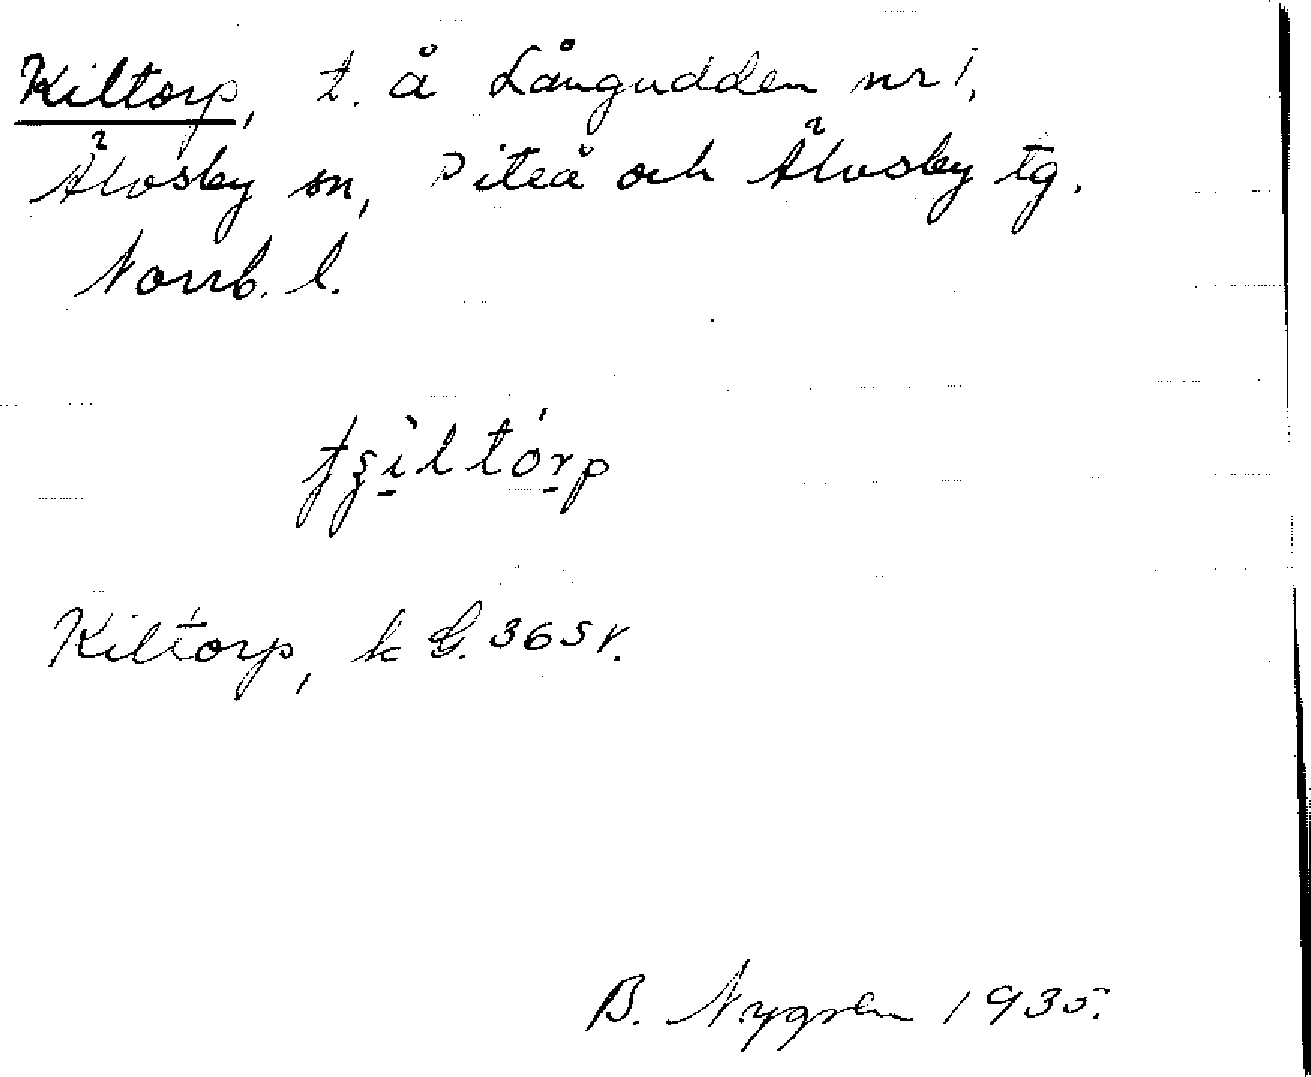 Kiltorp, t. å Långudden nr 1,
Älvsby sn, Piteå och Älvsby tg.
Norrb. l.
Kiltorp, k G. 365 V.
B. Nygren 1935.